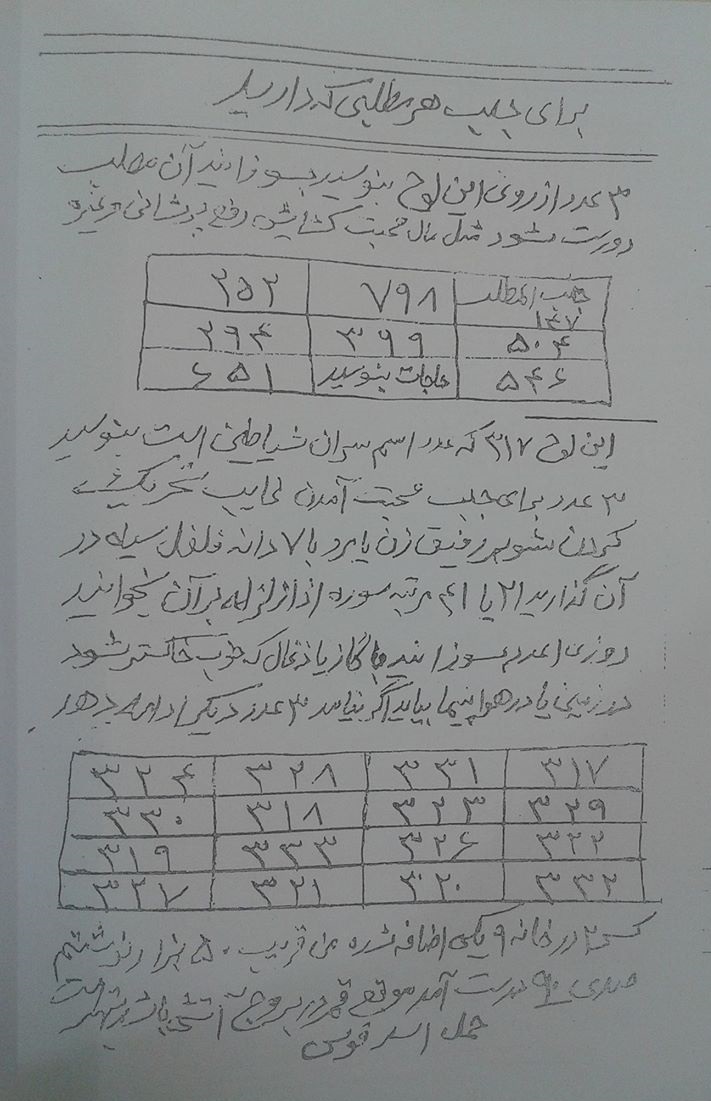 برای جلب هر مطلبی که دارید
۳ عدد از روی این لوح بنویسید بسوزانید آن مطلب
درست شود مثل مال محبت گشایش رفع پریشانی و غیره
جلب المطلب ۱۴۷ ۷۹۸ ۲۵۲
۵۰۴ ۳۹۹ ۲۹۴
۵۴۶ حاجات بنویسید ۶۵۱
این لوح ۳۱۷ که عدد اسم سران شیاطین است بنویسید
۳ عدد برای جلب محبت آمدن غایب تحریک
کردن شوهر رفیق زن یا مرد با ۷ دانه فلفل سیاه در
آن گذارید ۲۱ یا ۴۱ مرتبه سوره اذا زلزله بر آن بخوانید
روزی ۱ عدد بسوزانید با گاز یا ذغال که خوب خاکستر شود
در زمین یا در هواپیما بیاید اگر نیامد ۳ عدد دیگر ادامه بدهد
۳۱۷ ۳۳۱ ۳۲۸ ۳۲۴
۳۲۹ ۳۲۳ ۳۱۸ ۳۳۰
۳۲۲ ۳۲۶ ۳۳۳ ۳۱۹
۳۳۲ ۳۲۰ ۳۲۱ ۳۲۷
کسر ۲ در خانه ۹ یکی اضافه شده من قریب ۵۰ هزار نوشتم
صدی ۹۰ بدست آمد موقع قمر در بروج آتشی باشد بهتر است
حمل اسد قوس